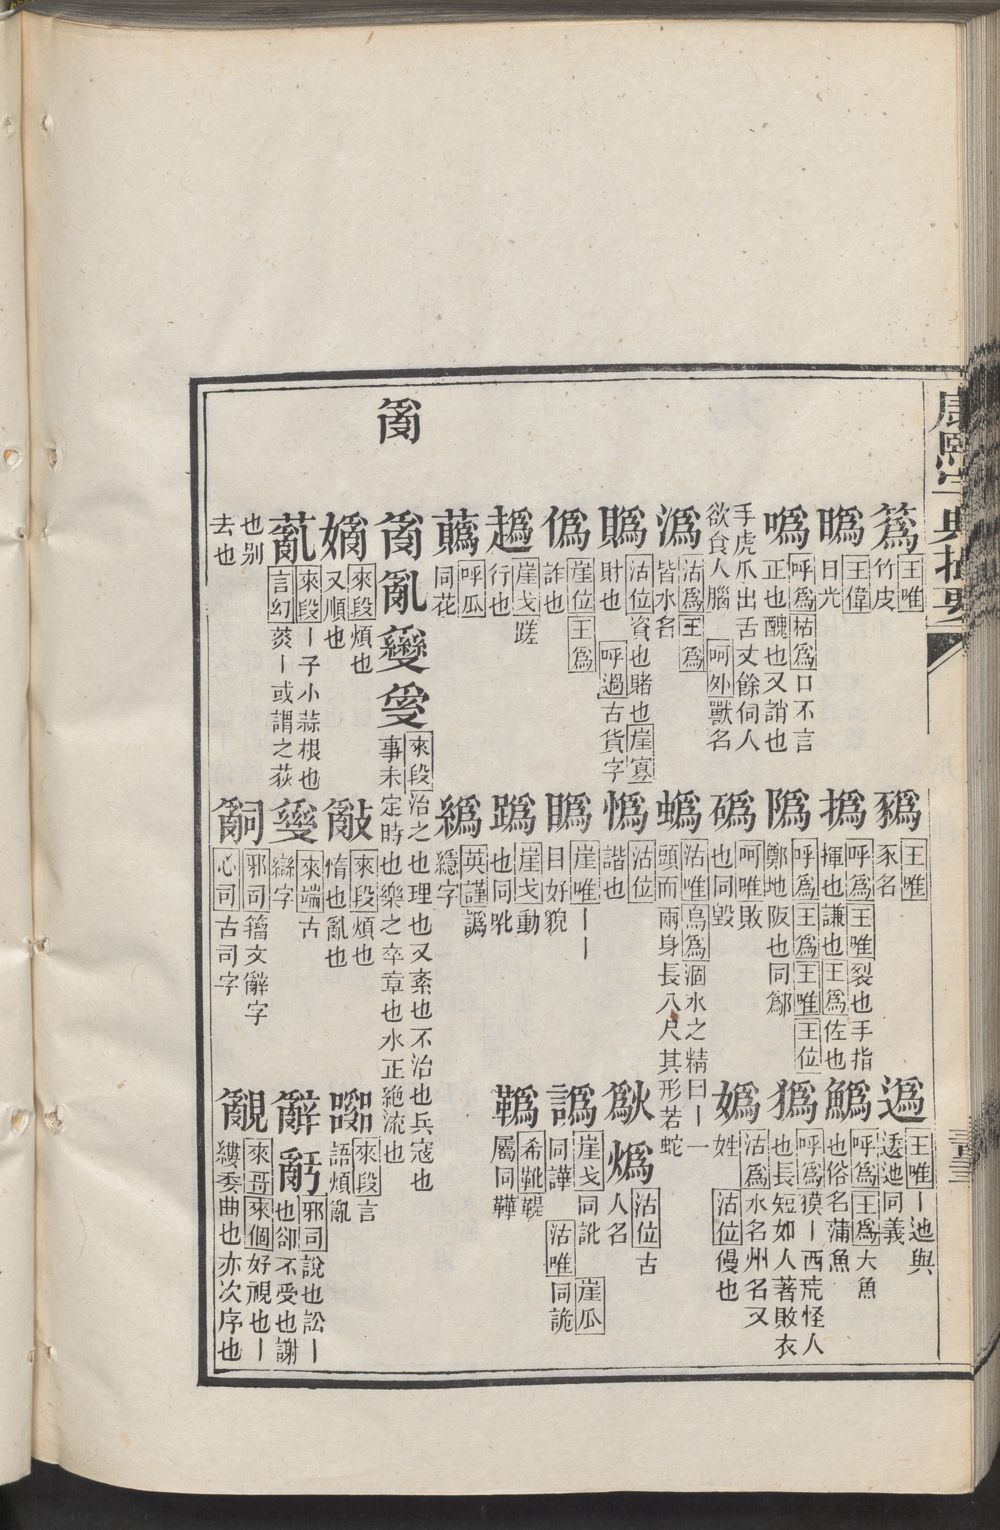 康熙字典撮要
篿 王唯竹皮
𤾊 王偉日光
噅 呼爲枯爲口不言正也醜也又誚也
手虎爪出舌丈餘伺人欲食人腦 呵外獸名
潙 沽爲王爲皆水名
賵 沽位資也賭也崖寡財也 呼過古貨字
僞 崖位王爲詐也
𧽶 崖戈蹉行也
蘤 呼瓜同花
𤔔
𤔔亂𤕍𤔬 來段治之也理也又紊也不治也兵寇也事未定時也樂之卒章也水正絕流也
嫡 來段煩也又順也
薍 來段丨子小蒜根也言幻菼丨或謂之荻
也别去也
豨 王唯豕名
撝 呼爲王唯裂也手指揮也謙也王爲佐也
隖 呼爲王爲王唯王位鄭地阪也同鄬
碼 呵唯敗也同毀
蟡 沽唯烏爲涸水之精曰丨一頭而兩身長八尺其形若蛇
憍 沽位諧也
瞩 崖唯丨丨目好貌
蹫 崖戈動也同吪
䌊 英謹譌繶字
敵 來段煩也惰也亂也
𤕍 來端古䜌字
嗣 邪司籒文辭字心司古司字
逶 王唯丨迆與逶迆同義
鰞 呼爲王爲大魚也俗名蒲魚
獢 呼爲獏丨西荒怪人也長短如人著敗衣
嬀 沽爲水名州名又姓 沽位僈也
𤆍 𤌟 沽位古人名
譌 崖戈同訛 崖瓜同譁 沽唯同詭
鞽 希靴鞮屬同鞾
𠮗 來段言語煩亂
辭𤔲 邪司說也訟丨也卻不受也謝
覶 來哥來個好視也丨縷委曲也亦次序也